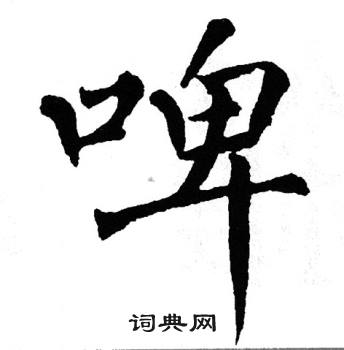 啤
词典网